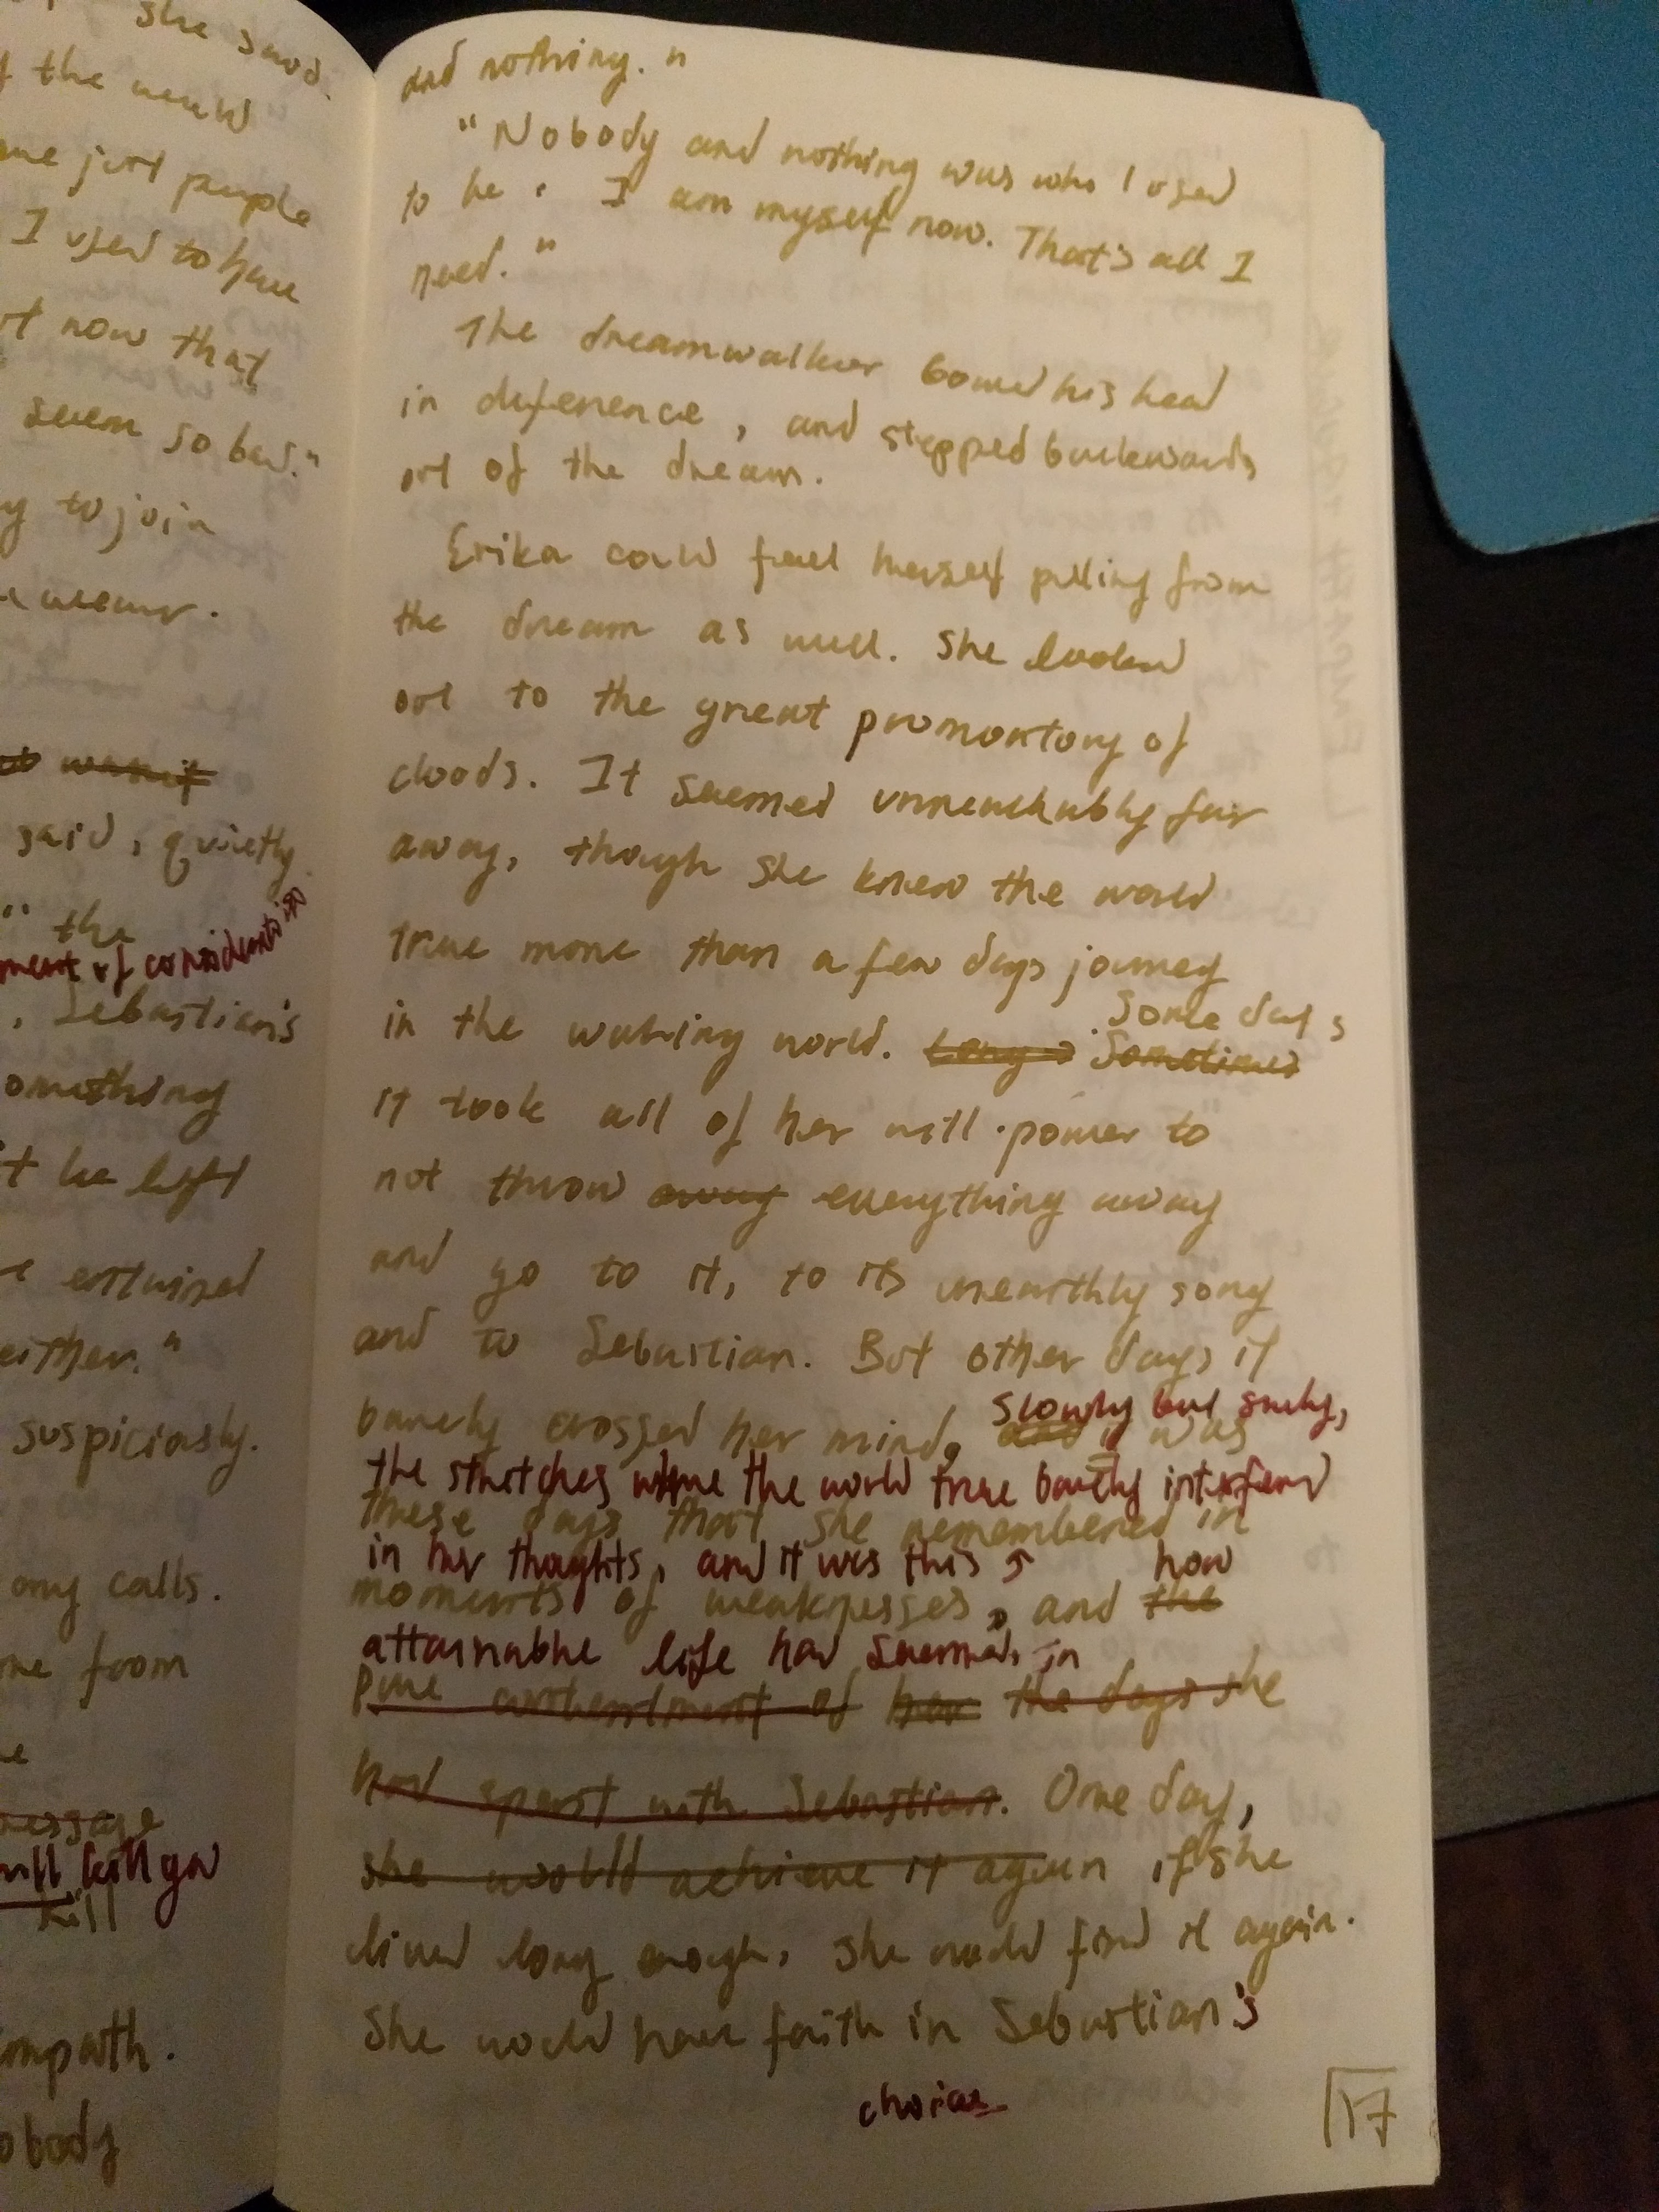 she said.
f the world
me just people
I used to have
t now that
seem so bad."
y to join
said, quietly
" the
ment of consideration
, Sebastian's
omething
t he left
entwined
either."
suspiciously.
any calls.
me from
message
will kill you
kill
mpath.
obody
and nothing."
"Nobody and nothing was who I used
to be. I am myself now. That's all I
need."
The dreamwalker bowed his head
in deference, and stepped backwards
out of the dream.
Erika could feel herself pulling from
the dream as well. She looked
out to the great promontory of
clouds. It seemed unreachably far
away, though she knew the world
true more than a few days journey
in the waking world. Long Sometimes
Some days
it took all of her will power to
not throw away everything away
and go to it, to its unearthly song
and to Sebastian. But other days it
barely crossed her mind, and it was
slowly but surely,
the stretches where the world true barely interfered
these days that she remembered in
in her thoughts, and it was this
how
moments of weaknesses, and the
attainable life had seemed in
pure contentment of her the days she
had spent with Sebastian. One day,
she would achieve it again if she
lived long enough, she would find it again.
She would have faith in Sebastian's
choices
17